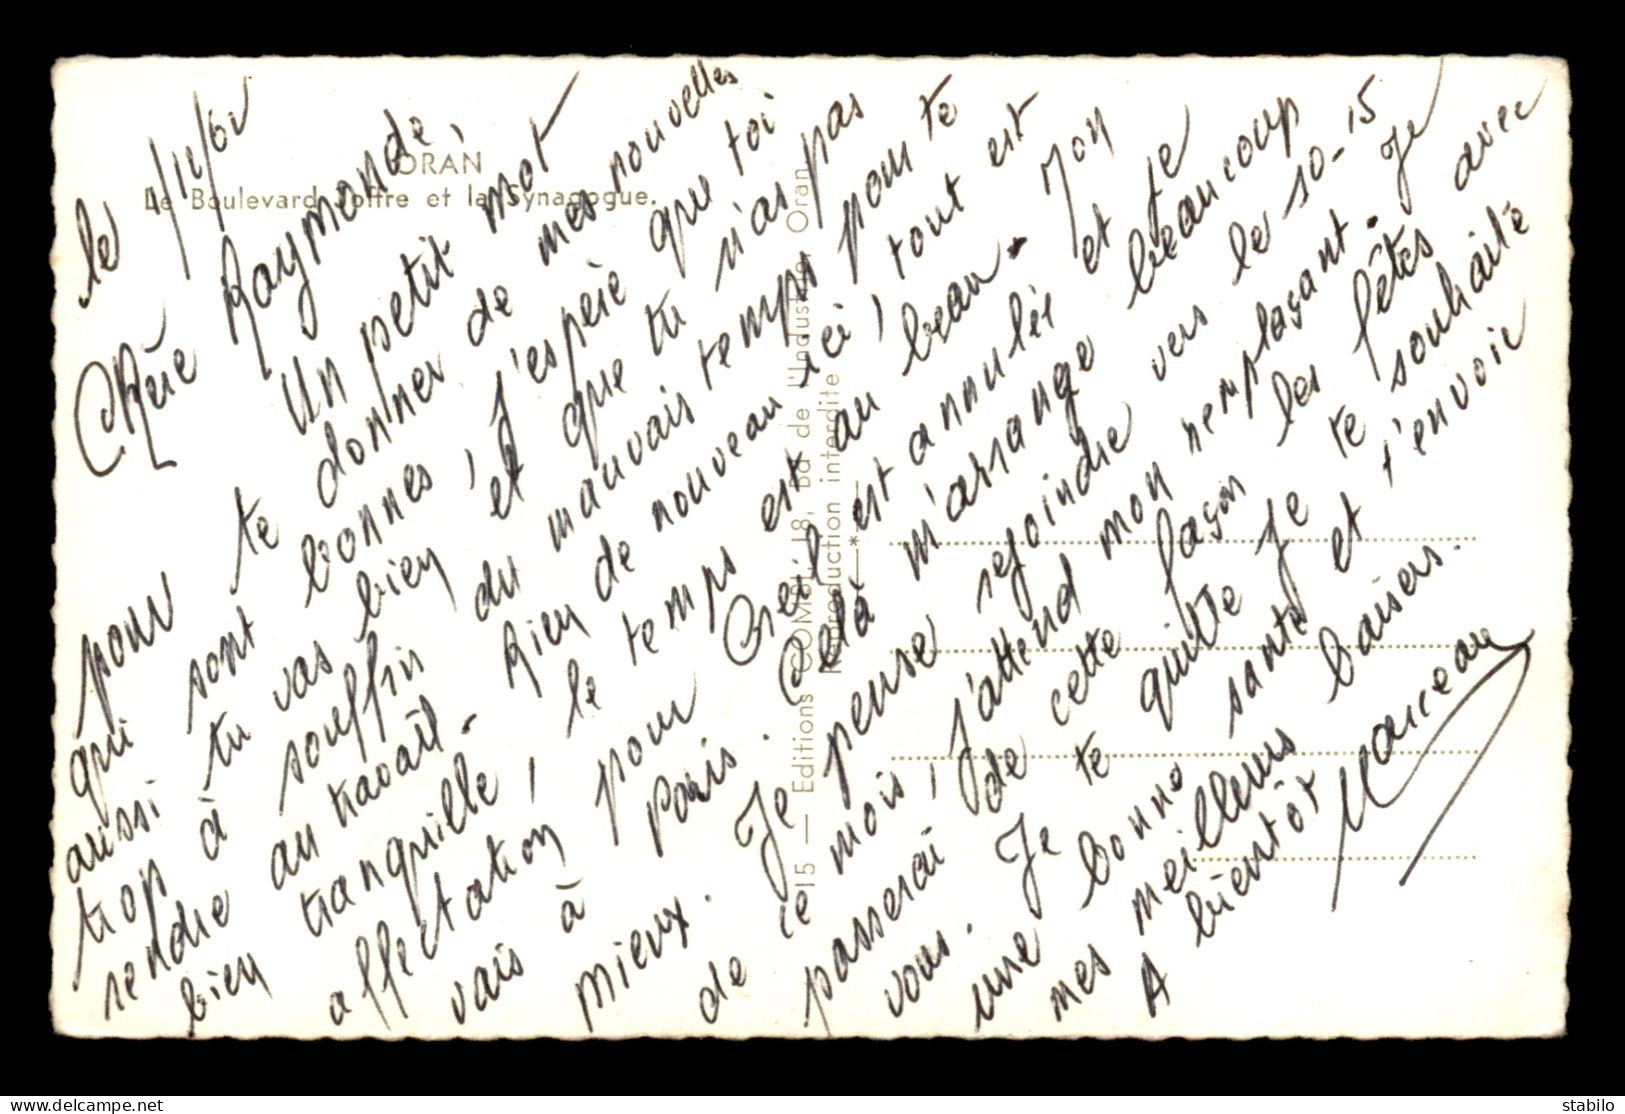 ORAN
Le Boulevard Joffre et la Synagogue.
le 1/12/62
Chère Raymonde,
Un petit mot
pour te donner de mes nouvelles
qui sont bonnes, j'espère que toi
aussi tu vas bien et que tu n'as pas
trop à souffrir du mauvais temps pour te
rendre au travail. Rien de nouveau ici, tout est
bien tranquille, le temps est au beau. Mon
affectation pour Creil est annulée et je
vais à Paris. Celà m'arrange beaucoup
mieux. Je pense rejoindre vers le 10-15
de ce mois, j'attend mon remplaçant. Je
passerai de cette façon les fêtes avec
vous. Je te quitte Je te souhaite
une bonne santé et t'envoie
mes meilleurs baisers.
A bientôt
Marceau
15 — Editions COMBI, 18, Bd de l'Industrie, Oran
Reproduction interdite
*
stabilo